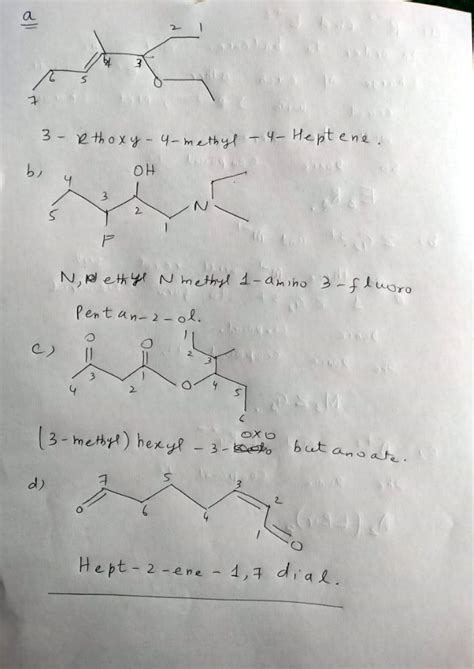 a
2 1
4 3
6 5 O
7
3 - Ethoxy - 4 - methyl - 4 - Heptene.
b,
OH
4 3 N
5 2 1
F
N, ethyl N methyl 1-amino 3-fluoro
Pentan-2-ol.
c)
O O 1 2 3
3 1 O 4 5
4 2 6
(3-methyl) hexyl - 3- oxo butanoate.
d)
7 5 3 2
O 6 4 1 O
Hept-2-ene-1,7 dial.